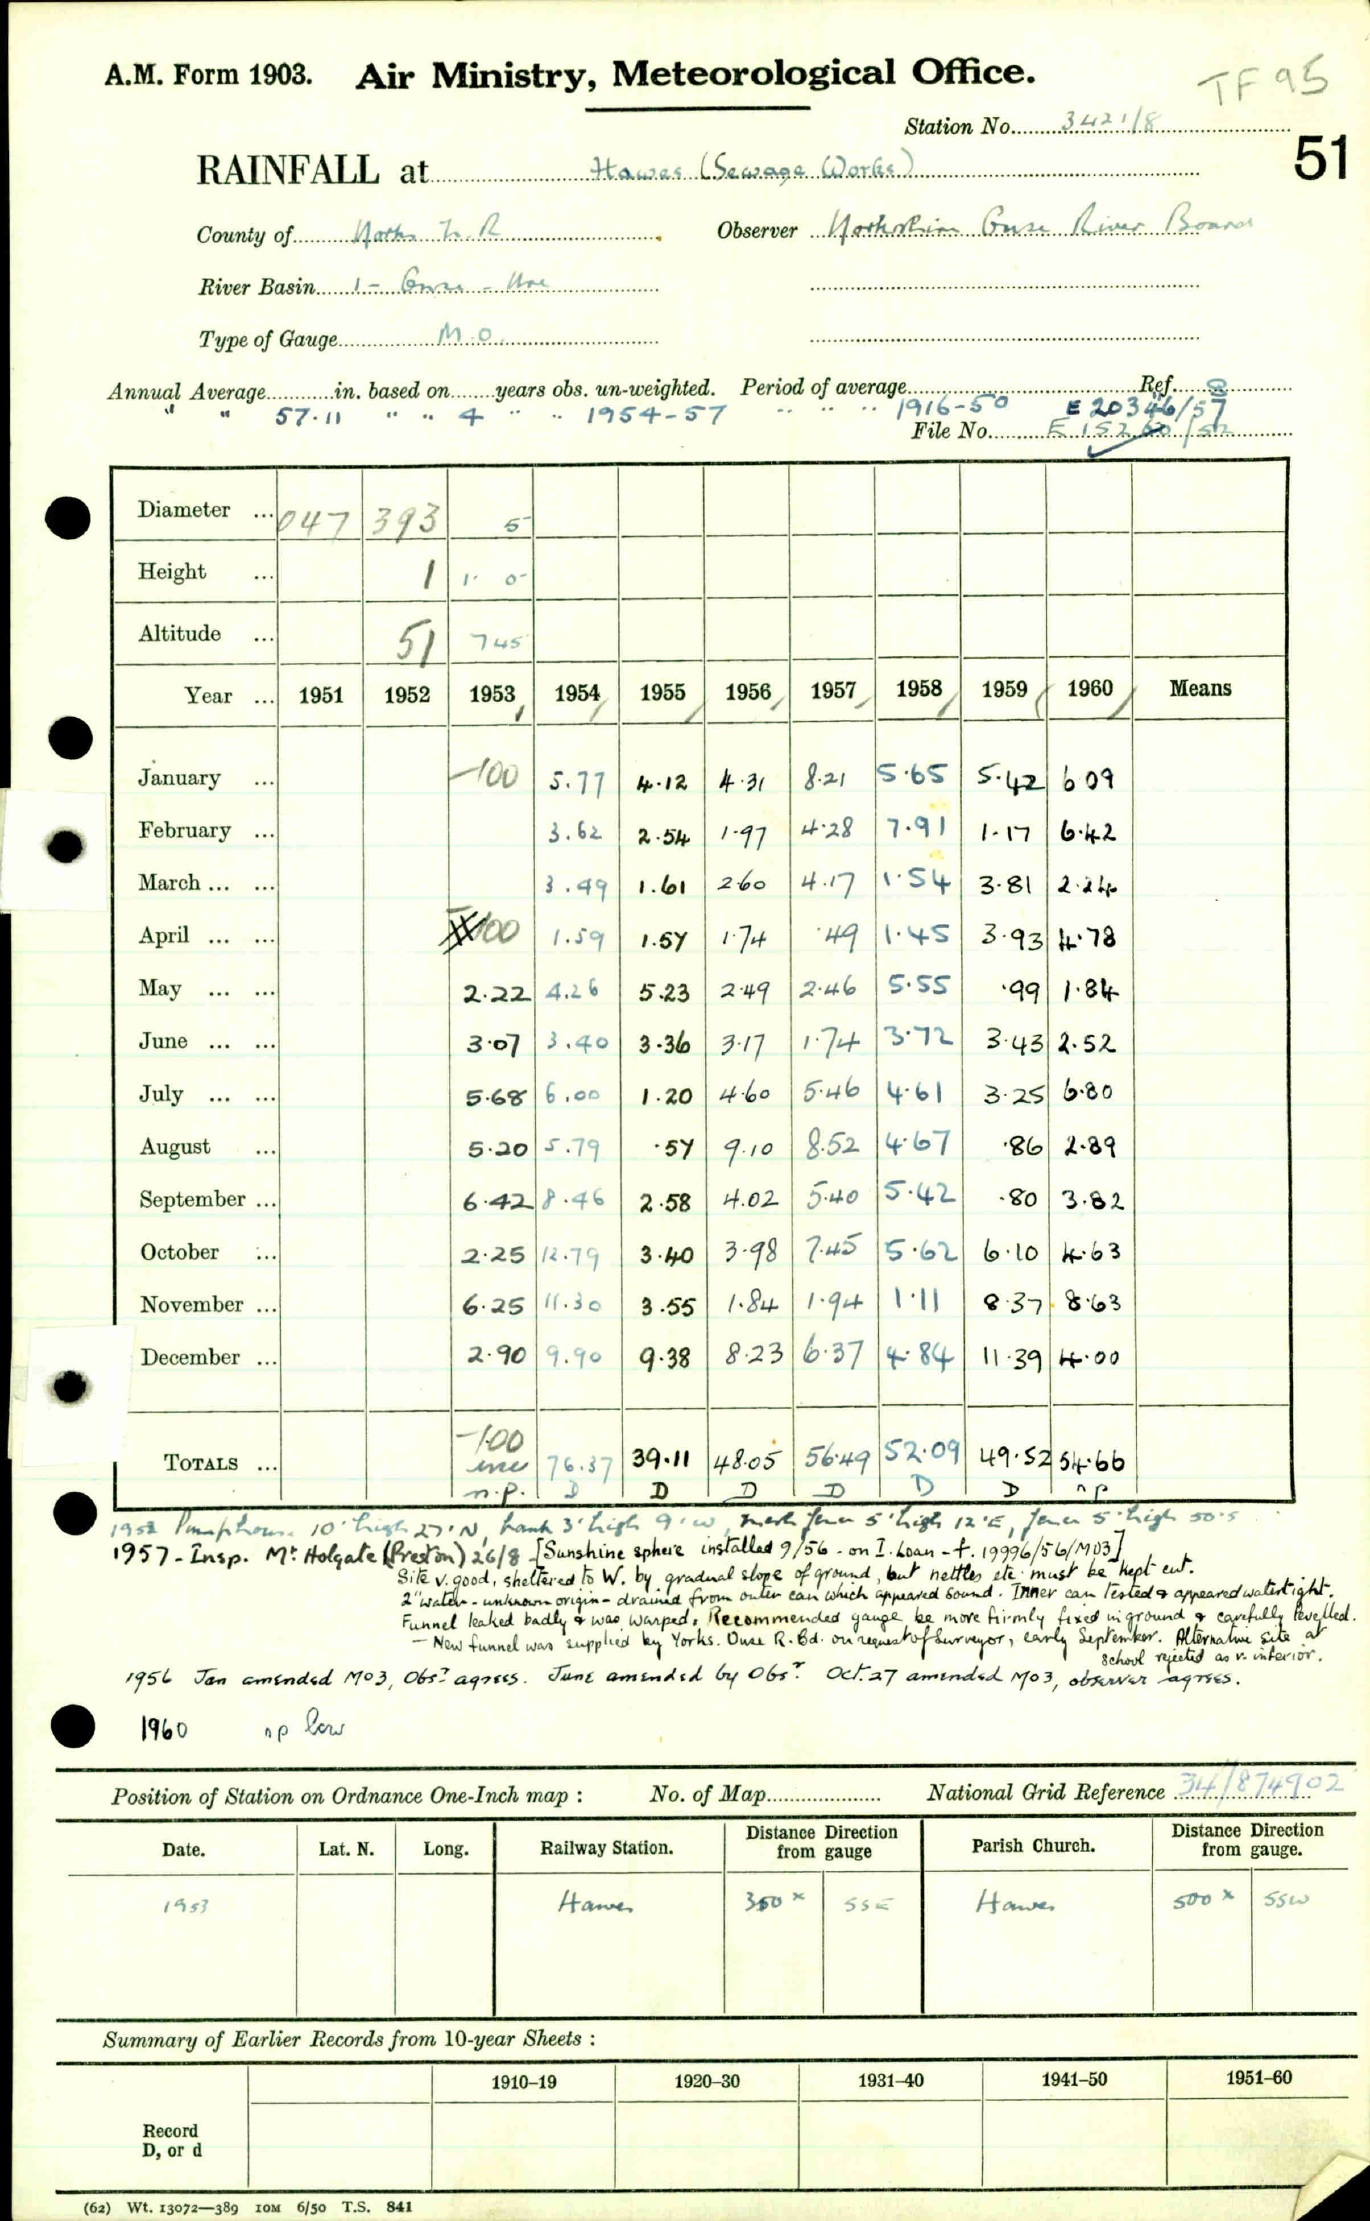 A.M. Form 1903. Air Ministry, Meteorological Office. TF 95
Station No. 3421/8
51
RAINFALL at Hawes (Sewage Works)
County of Yorks N. R Observer Yorkshire Ouse River Board
River Basin 1 - Ouse - Ure
Type of Gauge M.O.
Annual Average in. based on years obs. un-weighted. Period of average Ref.
" " 57.11 " " 4 " " 1954-57 " " " 1916-50 E 20346/57
File No. E 15260/52
Diameter ... 047 393 5
Height ... 1 1. 0
Altitude ... 51 745
Year ... 1951 1952 1953 1954 1955 1956 1957 1958 1959 1960 Means
January ... -100 5.77 4.12 4.31 8.21 5.65 5.42 6.09
February ... 3.62 2.54 1.97 4.28 7.91 1.17 6.42
March ... ... 3.49 1.61 2.60 4.17 1.54 3.81 2.24
April ... ... 100 1.59 1.57 1.74 .49 1.45 3.93 4.78
May ... ... 2.22 4.26 5.23 2.49 2.46 5.55 .99 1.84
June ... ... 3.07 3.40 3.36 3.17 1.74 3.72 3.43 2.52
July ... ... 5.68 6.00 1.20 4.60 5.46 4.61 3.25 6.80
August ... 5.20 5.79 .57 9.10 8.52 4.67 .86 2.89
September ... 6.42 8.46 2.58 4.02 5.40 5.42 .80 3.82
October ... 2.25 12.79 3.40 3.98 7.45 5.62 6.10 4.63
November ... 6.25 11.30 3.55 1.84 1.94 1.11 8.37 8.63
December ... 2.90 9.90 9.38 8.23 6.37 4.84 11.39 4.00
TOTALS ... -100 76.37 39.11 48.05 56.49 52.09 49.52 54.66
n.p. D D D D D D n p
1952 Pumphouse 10' high 27' N, bank 3' high 9' W, mesh fence 5' high 12' E, fence 5' high 50' S
1957 - Insp. Mr. Holgate (Preston) 26/8 - [Sunshine sphere installed 9/56 - on I. Loan - f. 19996/56/MO3]
Site v. good, sheltered to W. by gradual slope of ground, but nettles etc must be kept cut.
2" water - unknown origin - drained from outer can which appeared sound. Inner can tested & appeared watertight.
Funnel leaked badly & was warped. Recommended gauge be more firmly fixed in ground & carefully levelled.
- New funnel was supplied by Yorks. Ouse R. Bd. on request of Surveyor, early September. Alternative site at
school rejected as v. inferior.
1956 Jan amended MO3, Obsr agrees. June amended by Obsr. Oct. 27 amended MO3, observer agrees.
1960 n p low
Position of Station on Ordnance One-Inch map : No. of Map National Grid Reference 34/874902
Date. Lat. N. Long. Railway Station. Distance Direction from gauge Parish Church. Distance Direction from gauge.
1953 Hawes 350 x SSE Hawes 500 x SSW
Summary of Earlier Records from 10-year Sheets :
1910–19 1920–30 1931–40 1941–50 1951–60
Record
D, or d
(62) Wt. 13072—389 10M 6/50 T.S. 841